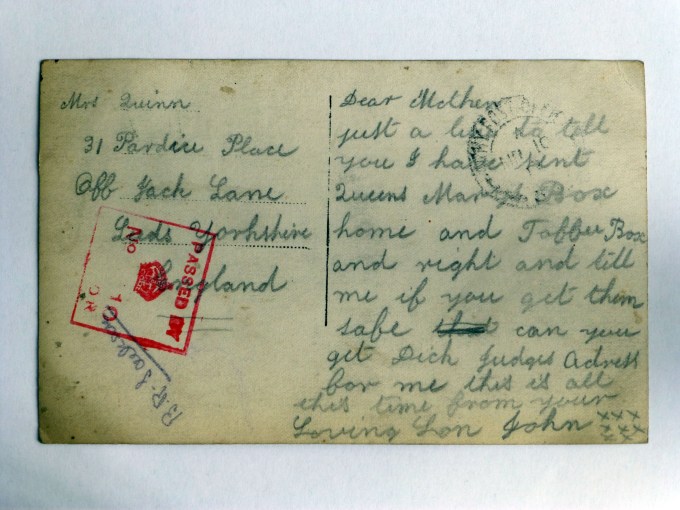 Mrs Quinn
31 Pardice Place
Off Jack Lane
Leeds Yorkshire
England
PASSED BY
No 10
Dear Mother
just a line to tell
you I have sent
Queens Marys Box
home and Toffee Box
and right and tell
me if you get them
safe can you
get Dick Judges Adress
for me this is all
this time from your
Loving Son John xxx
xxx